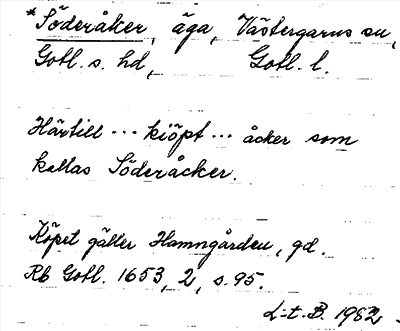 *Söderåker, äga, Västergarns sn,
Gotl. s. hd, Gotl. l.
Härtill ... kiöpt ... åcker som
kallas Söderåcker.
Köpet gäller Hamngården, gd.
Rb Gotl. 1653, 2, s. 95.
L-t. B. 1982